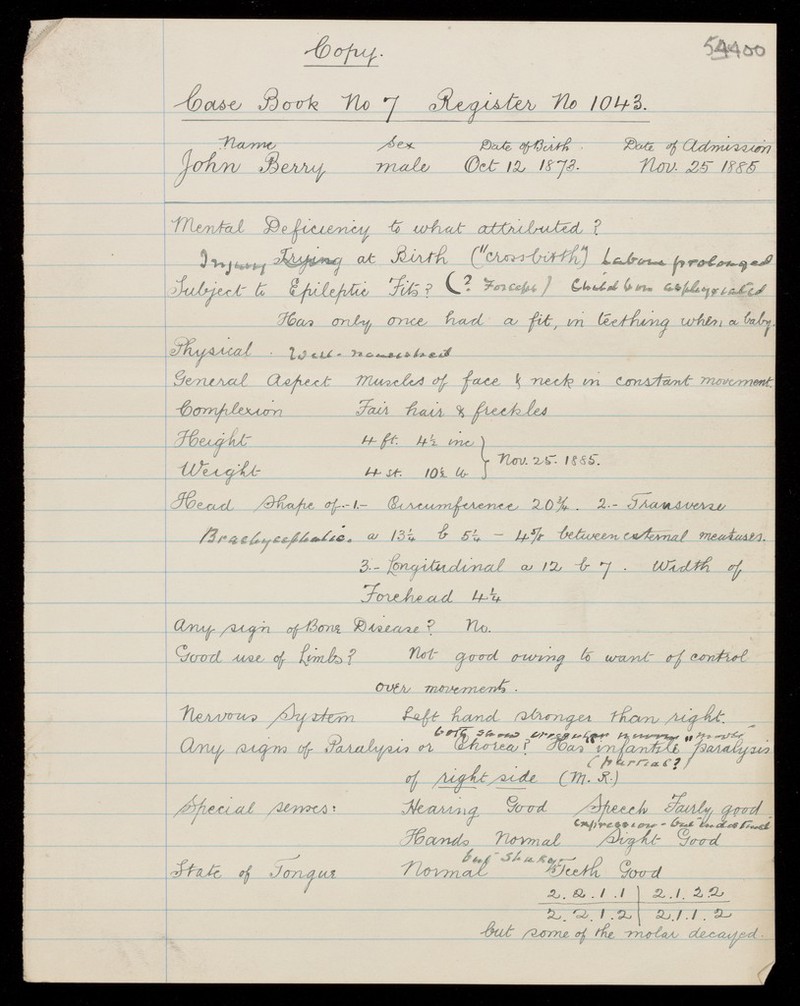 Copy.
54400
Case Book No 7 Register No 1043.
Name Sex Date of Birth. Date of Admission
John Berry male Oct 12 1873. Nov. 25 1885
Mental Deficiency to what attributed?
Injury Trying at Birth ("cross birth") Labour prolonged
Subject to Epileptic Fits? (? Forceps) Child born asphyxiated
Has only once had a fit, in teething when a baby.
Physical. Well-nourished
General Aspect Muscles of face & neck in constant movement.
Complexion Fair hair & freckles
Height 4 ft. 4½ inc
Weight 4 st. 10½ lb } Nov. 25. 1885.
Head Shape of - 1.- Circumference 20¾. 2.- Transverse
Brachycephalic. a 13¼ b 5¼ - 4⅝ between external measures.
3.- Longitudinal a 12 b 7. Width of
Forehead 4¼
Any sign of Bone Disease? No.
Good use of Limbs? Not good owing to want of control
over movements.
Nervous System Left hand stronger than right.
both show irregular
Any signs of Paralysis or Chorea? Has "infantile" paralysis
(partial?)
of right side (M. R.)
Special senses: Hearing Good Speech Fairly good
expression - but indistinct
Hands Normal Sight Good
but shaky
State of Tongue Normal Teeth Good
2. 2. 1. 1 | 2. 1. 2. 2
2. 2. 1. 2 | 2. 1. 1. 2
but some of the molar decayed.